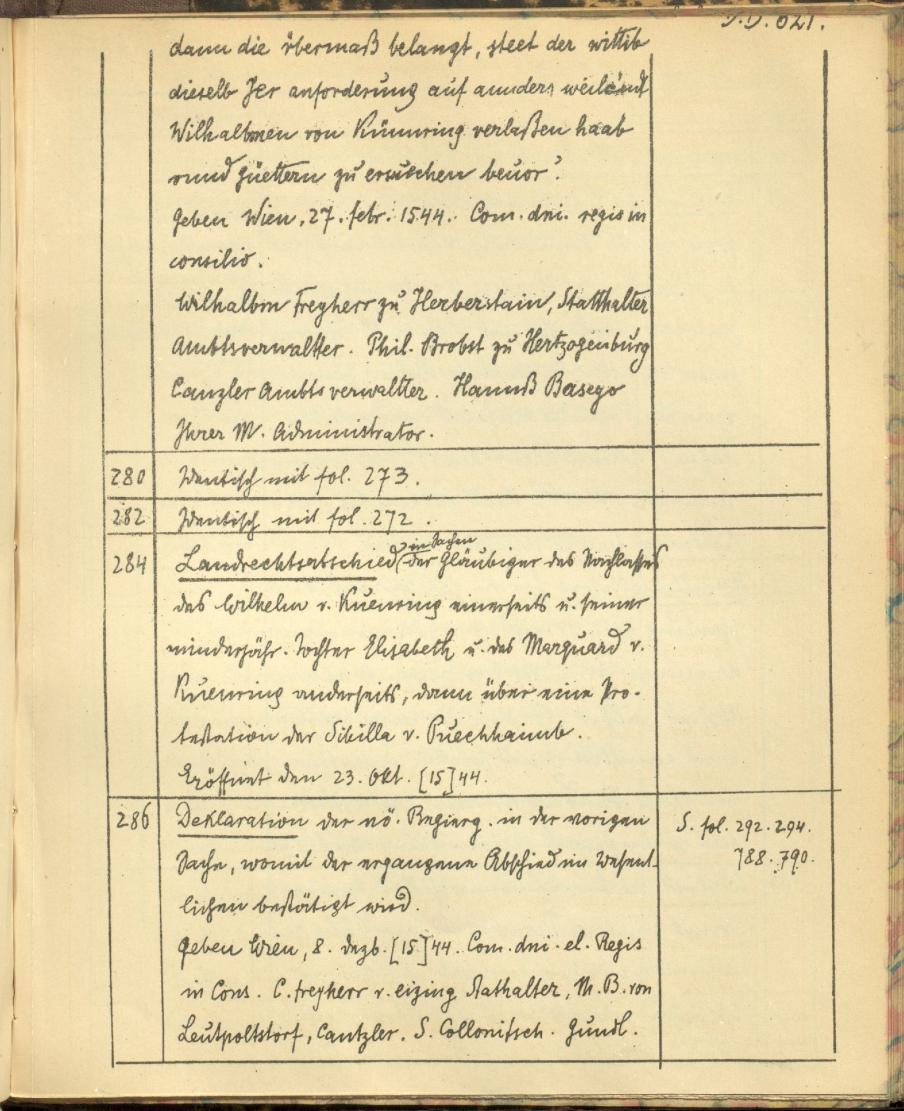 dann die übermaß belangt, steet der wittib
dieselb Jer anforderung auf annders weilendt
Wilhalbmen von Künnring verlaßen haab
unnd güettern zu ersuechen beuor.
Geben Wien, 27. febr. 1544. Com. dni. regis in
consilio.
Wilhalbm Freyherr zu Herberstain, Statthalter
Ambtsverwaltter. Phil. Brobst zu Hertzogenburg
Canzler Ambts verwaltter. Hannß Basego
Jhrer M. Administrator.
280 Identisch mit fol. 273.
282 Identisch mit fol. 272.
284 Landrechtsabschied in Sachen der Gläubiger des Nachlasses
des Wilhelm v. Kuenring einerseits u. seiner
minderjähr. Tochter Elisabeth u. des Marquard v.
Kuenring anderseits, dann über eine Pro-
testation der Sibilla v. Puechhaimb.
Eröffnet den 23. Okt. [15]44.
286 Deklaration der nö. Regierg. in der vorigen S. fol. 292. 294.
Sache, womit der ergangene Abschied im Wesent- 788. 790.
lichen bestätigt wird.
Geben Wien, 8. Dezb. [15]44. Com. dni. el. Regis
in Cons. C. freyherr v. eizing Stathalter, M. B. von
Leutpoltstorf, Cantzler. S. Collonitsch. Gundl.